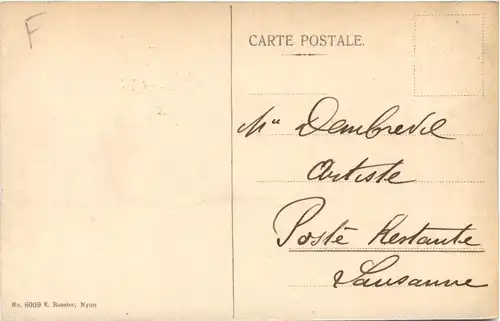 F
CARTE POSTALE.
Mlle Dambrevil
Artiste
Poste Restante
Lausanne
No. 8009 E. Rossier, Nyon